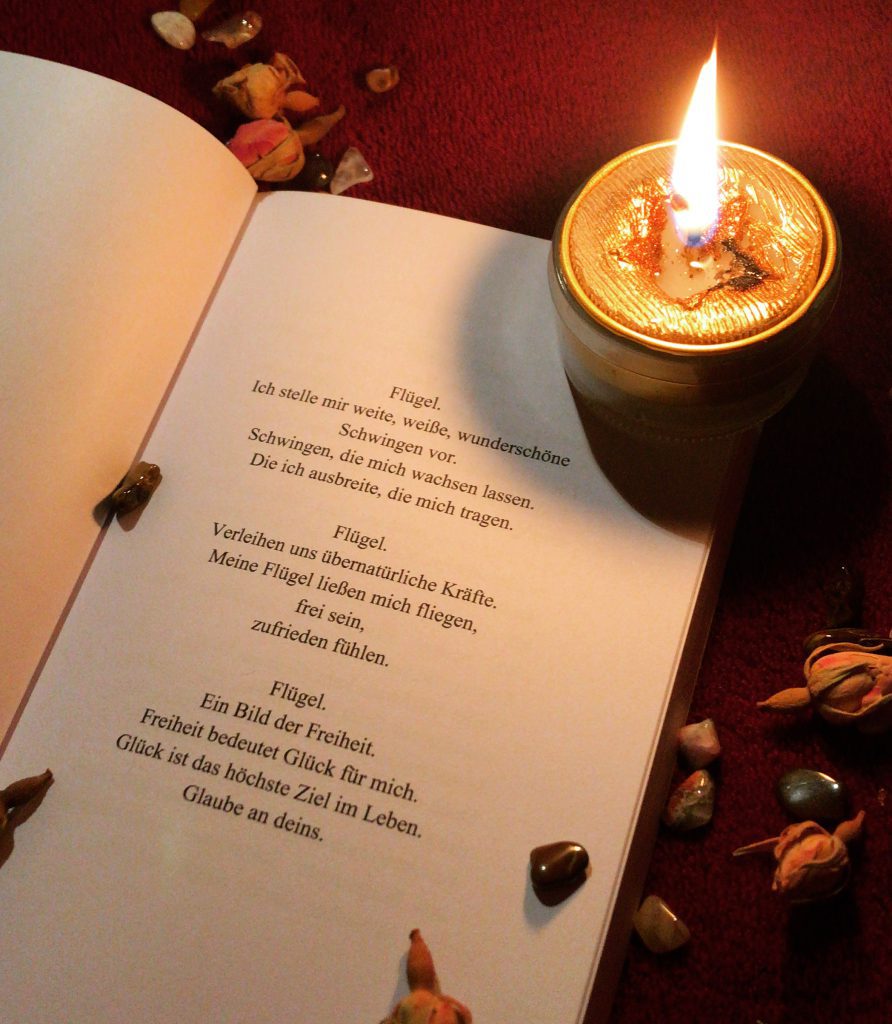 Flügel.
Ich stelle mir weite, weiße, wunderschöne
Schwingen vor.
Schwingen, die mich wachsen lassen.
Die ich ausbreite, die mich tragen.
Flügel.
Verleihen uns übernatürliche Kräfte.
Meine Flügel ließen mich fliegen,
frei sein,
zufrieden fühlen.
Flügel.
Ein Bild der Freiheit.
Freiheit bedeutet Glück für mich.
Glück ist das höchste Ziel im Leben.
Glaube an deins.